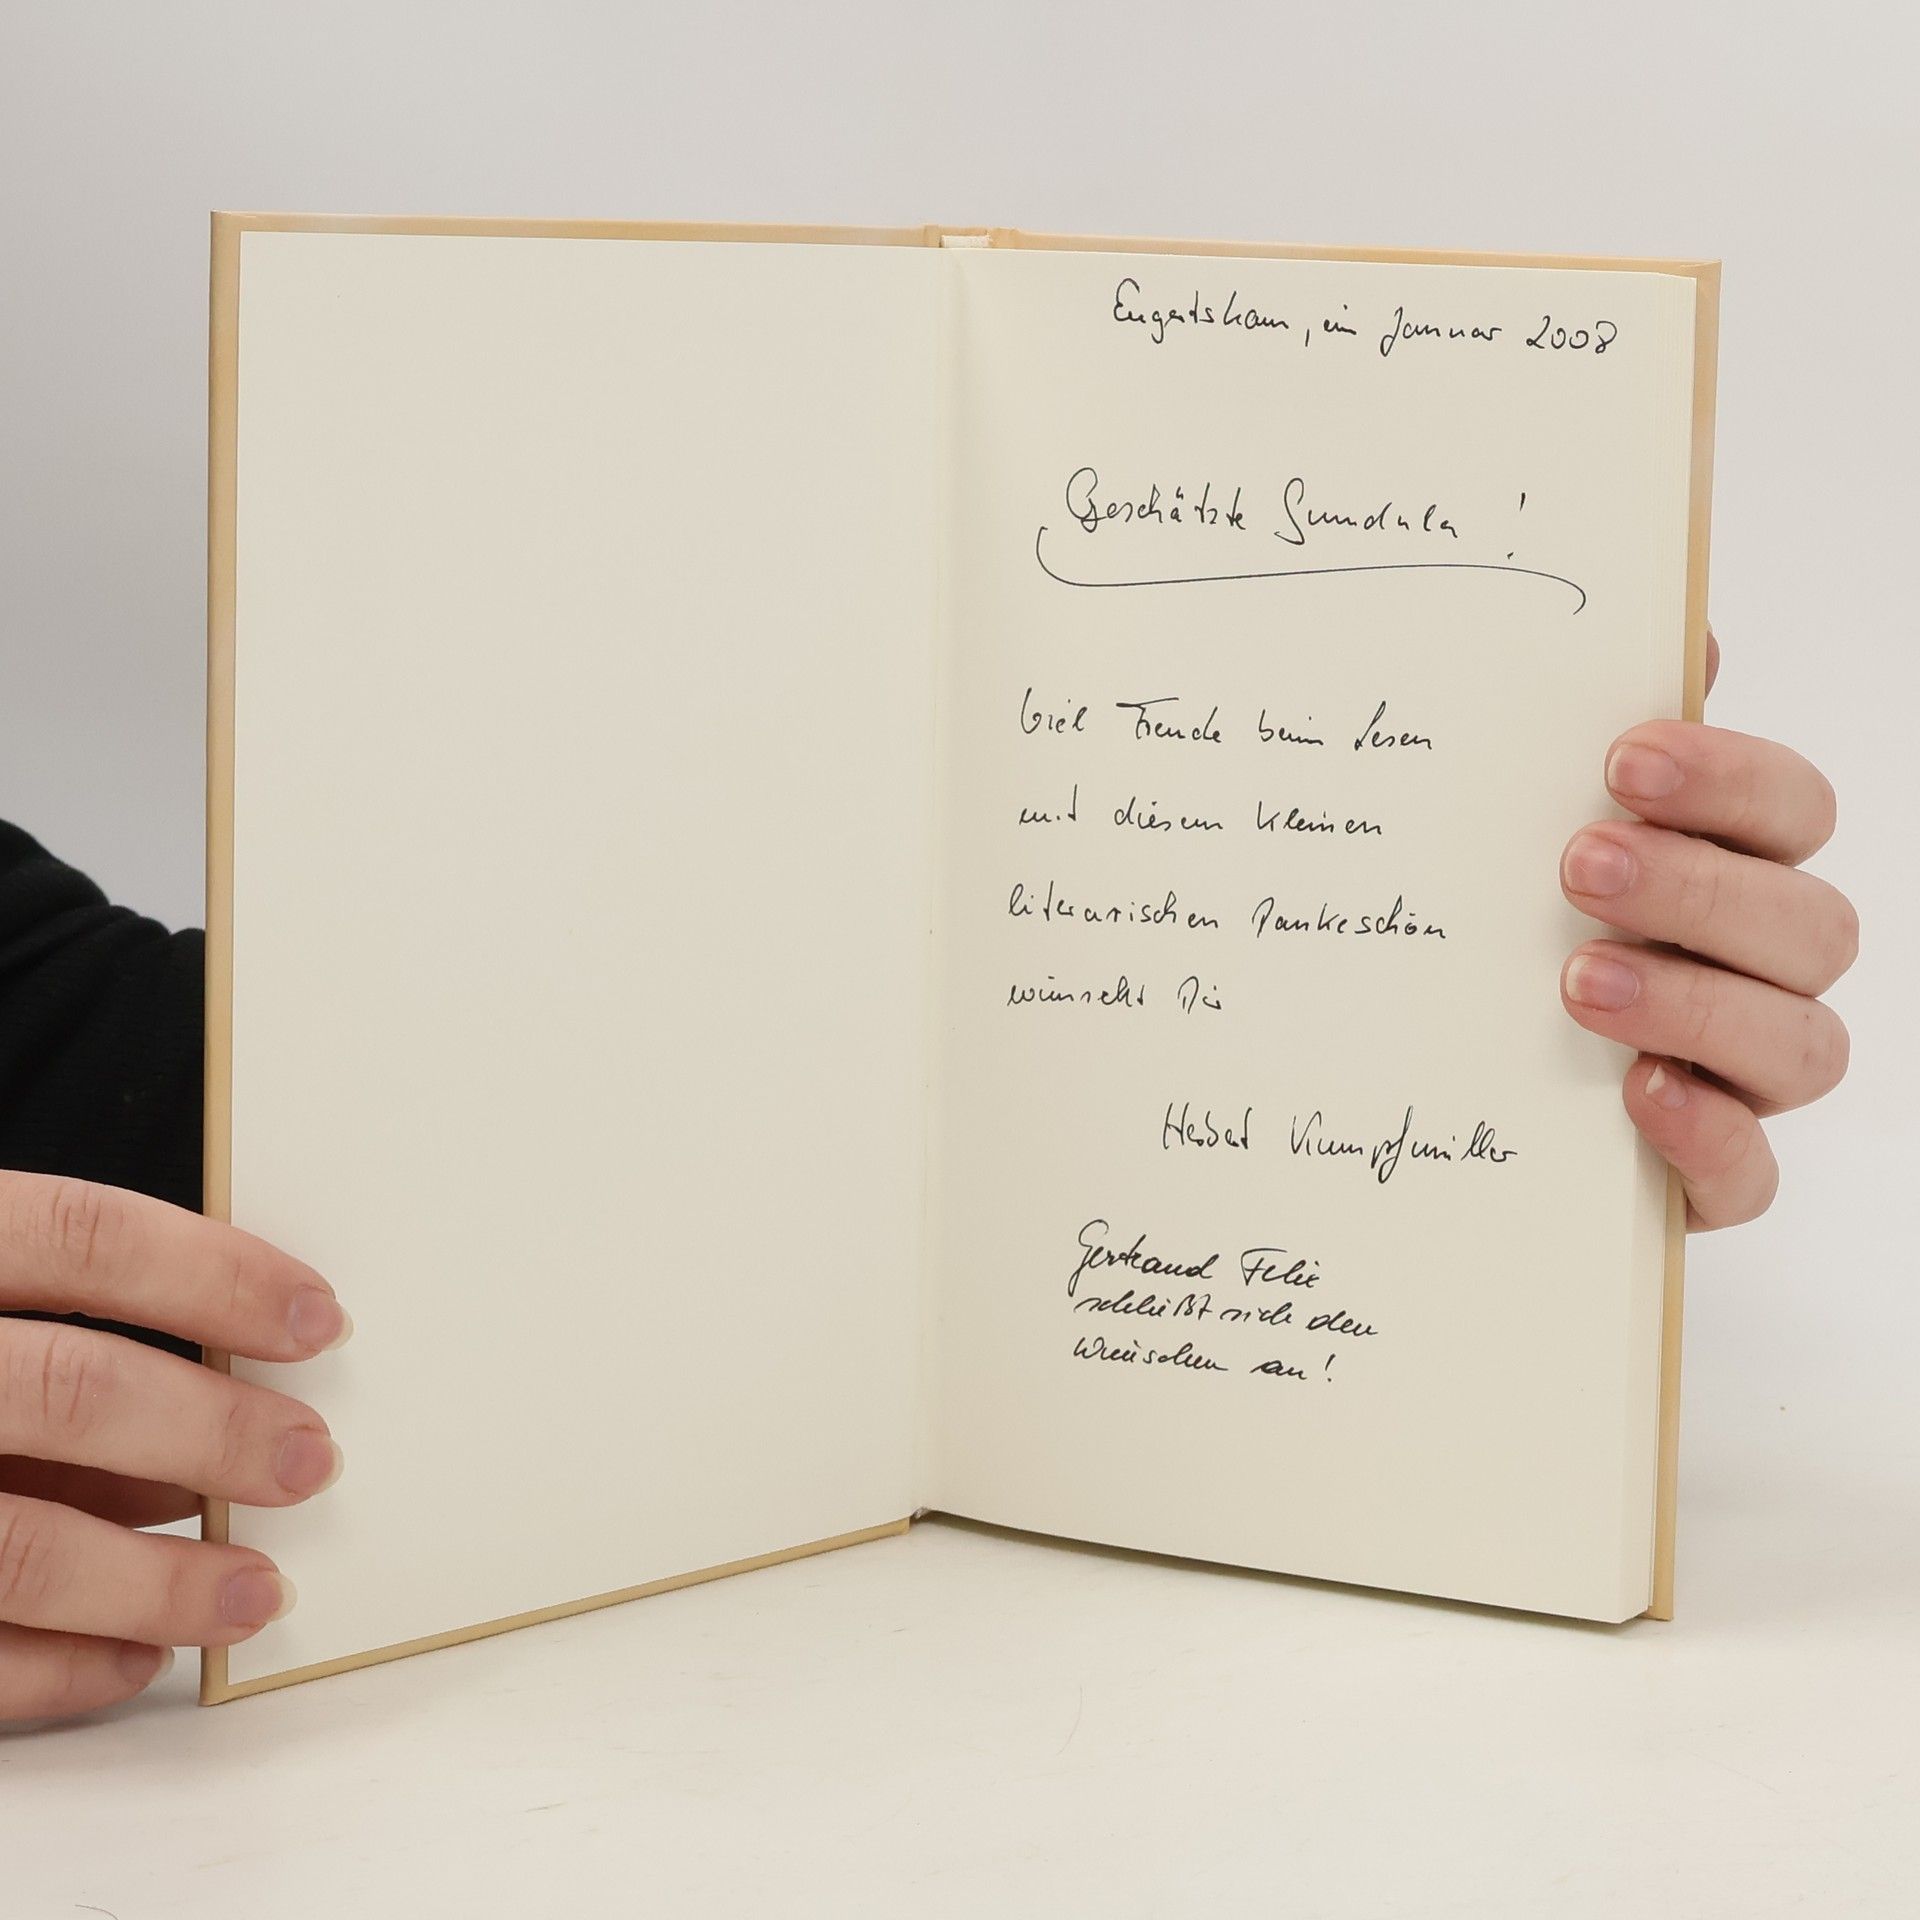 Engertsham, im Januar 2008
Geschätzte Gundula!
Viel Freude beim Lesen
mit diesem kleinen
literarischen Dankeschön
wünscht Dir
Herbert Kumpfmüller
Gertraud Felix
schließt sich den
Wünschen an!